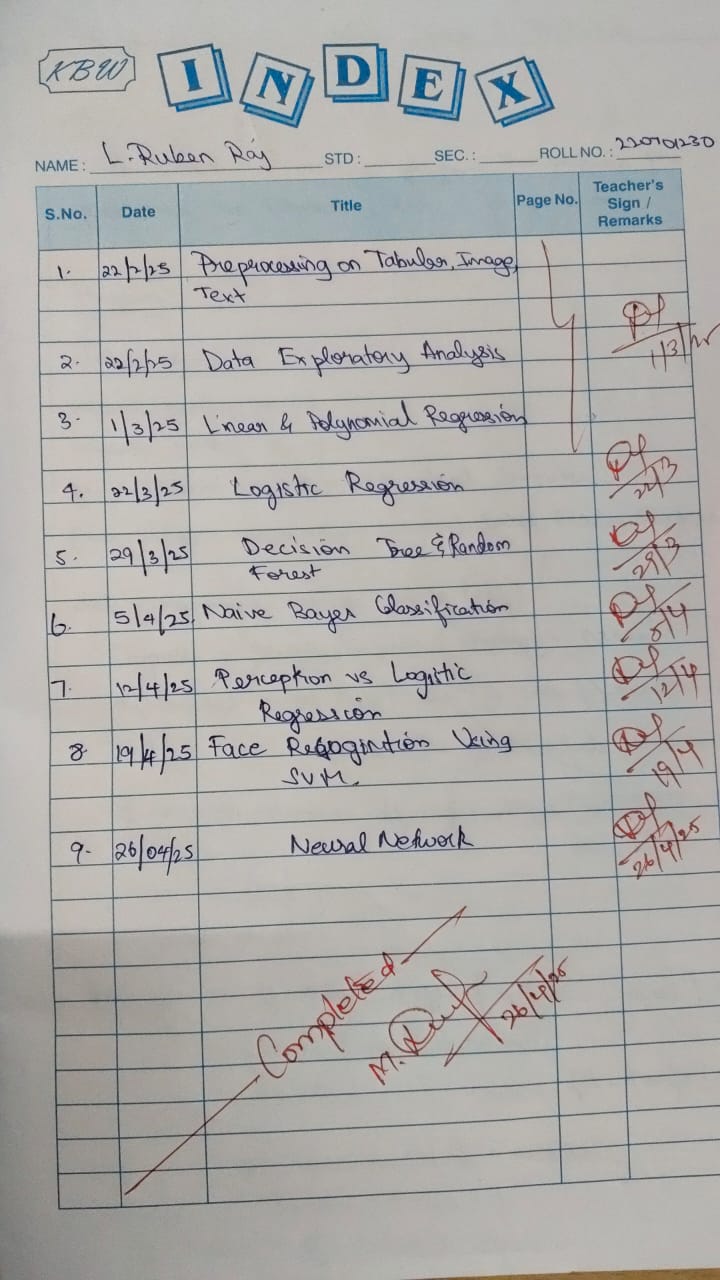 KBW
INDEX
NAME: L. Ruben Raj STD: SEC.: ROLL NO.: 220701230
S.No. Date Title Page No. Teacher's Sign / Remarks
1. 22/2/25 Preprocessing on Tabular, Image,
Text
1/3/25
2. 22/2/25 Data Exploratory Analysis
3. 1/3/25 Linear & Polynomial Regression
4. 22/3/25 Logistic Regression 22/3
5. 29/3/25 Decision Tree & Random 29/3
Forest
6. 5/4/25 Naive Bayes Classification 5/4
7. 12/4/25 Perception vs Logistic 12/4
Regression
8 19/4/25 Face Recogintion Using 19/4
SVM.
9. 26/04/25 Neural Network 26/4/25
Completed
M. 26/4/25